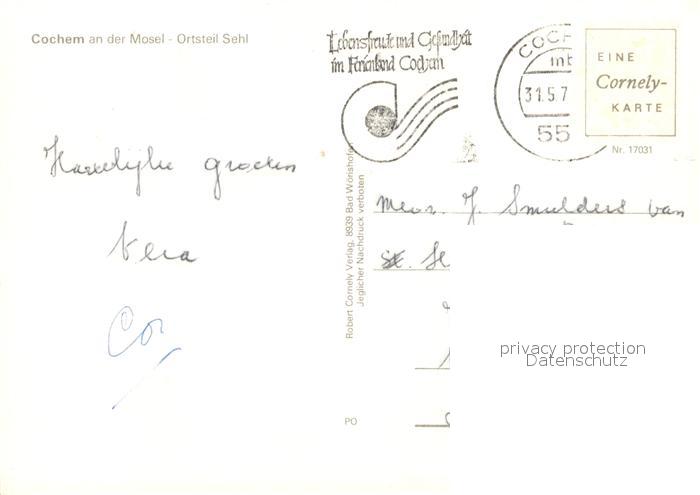 Cochem an der Mosel - Ortsteil Sehl
Lebensfreude und Gesundheit
im Ferienland Cochem
COCH
31.5.7
55
EINE
Cornely-
KARTE
Nr. 17031
Hartelijke groeten
Vera
Cor
Robert Cornely Verlag, 8939 Bad Wörishofen
Jeglicher Nachdruck verboten
Mevr. J. Smulders van
PO
privacy protection
Datenschutz